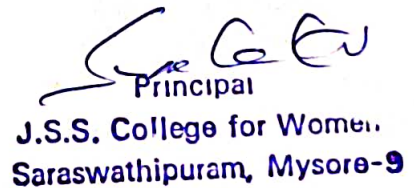 Principal
J.S.S. College for Women.
Saraswathipuram, Mysore-9